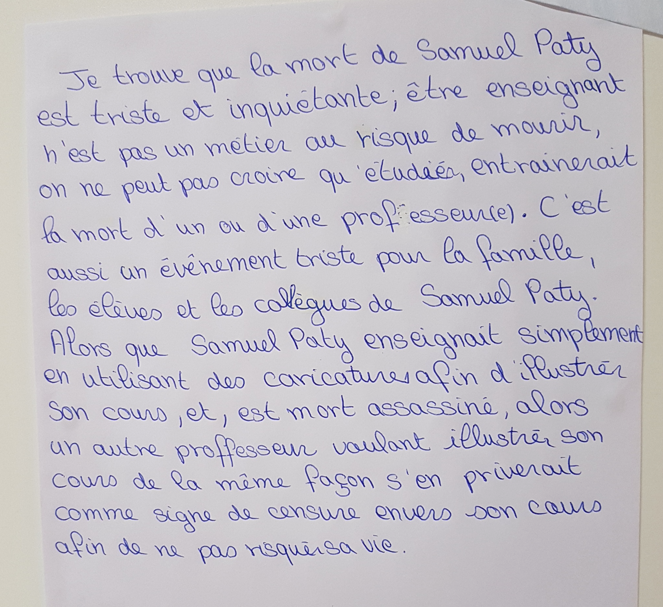 Je trouve que la mort de Samuel Paty
est triste et inquiétante; être enseignant
n'est pas un métier au risque de mourir,
on ne peut pas croire qu'étudiés, entrainerait
la mort d'un ou d'une professeur(e). C'est
aussi un évênement triste pour la famille,
les élèves et les collègues de Samuel Paty.
Alors que Samuel Paty enseignait simplement
en utilisant des caricatures afin d'illustrér
son cours, et, est mort assassiné, alors
un autre proffesseur voulant illustrér son
cours de la même façon s'en priverait
comme signe de censure envers son cours
afin de ne pas risquér sa vie.